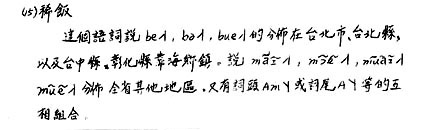 (15)稀飯
這個語詞說 be˧, bə˧, bue˧ 的分佈在台北市、台北縣,
以及台中縣、彰化縣靠海鄉鎮。說
分佈全省其他地區,又有詞頭 Am Y 或詞尾 A Y 等的互
相組合。